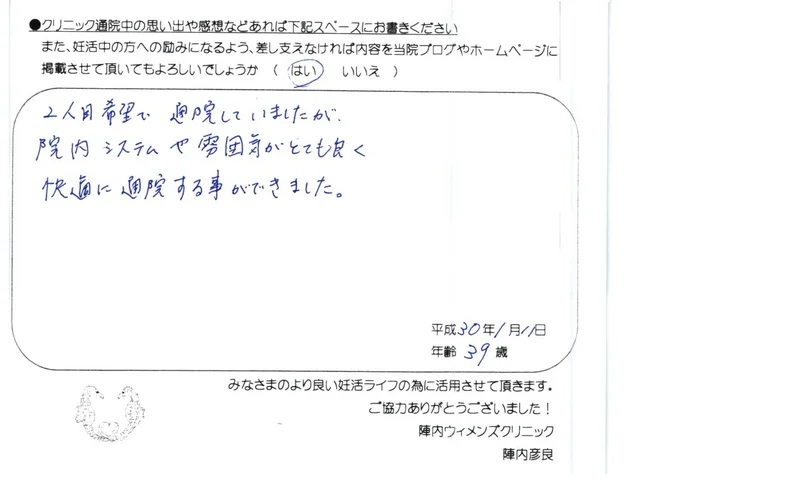 ●クリニック通院中の思い出や感想などあれば下記スペースにお書きください
また、妊活中の方への励みになるよう、差し支えなければ内容を当院ブログやホームページに
掲載させて頂いてもよろしいでしょうか （ はい いいえ ）
2人目希望で 通院していましたが、
院内 システムや 雰囲気がとても良く
快適に通院する事ができました。
平成30年1月11日
年齢 39 歳
みなさまのより良い妊活ライフの為に活用させて頂きます。
ご協力ありがとうございました！
陣内ウィメンズクリニック
陣内彦良